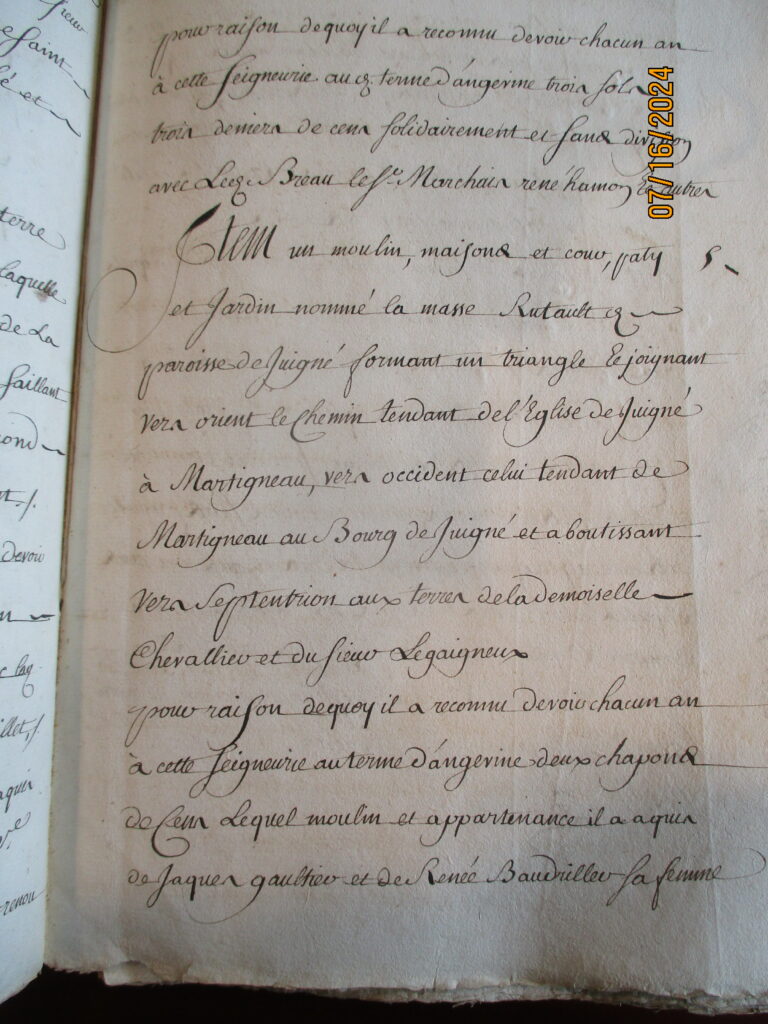 pour raison dequoy il a reconnu devoir chacun an
à cette seigneurie au terme d'angevine trois sols
trois deniers de cens solidairement et sans division
avec Breau le Sr. Marchais rené hamon & autres
Item un moulin, maisons et cour, paty 5
et Jardin nommé la masse Rutault
paroisse de Juigné formant un triangle & joignant
vers orient le Chemin tendant de l'Eglise de Juigné
à Martigneau, vers occident celui tendant de
Martigneau au Bourg de Juigné et aboutissant
vers Septentrion aux terres de la demoiselle
Chevallier et du sieur Legaigneux
pour raison dequoy il a reconnu devoir chacun an
à cette seigneurie au terme d'angevine deux chapons
de Cens Lequel moulin et appartenance il a aquis
de Jaques gaultier et de Renée Baudriller sa femme
sieur
saint
é et
terre
laquelle
de La
saillant
devoir
07/16/2024